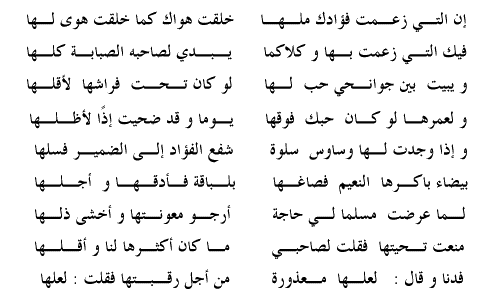 إن التي زعمت فؤادك ملها خلقت هواك كما خلقت هوى لها
فيك التي زعمت بها و كلاكما يبدي لصاحبه الصبابة كلها
و يبيت بين جوانحي حب لها لو كان تحت فراشها لأقلها
و لعمرها لو كان حبك فوقها يوما و قد ضحيت إذًا لأظلها
و إذا وجدت لها وساوس سلوة شفع الفؤاد إلى الضمير فسلها
بيضاء باكرها النعيم فصاغها بلباقة فأدقها و أجلها
لما عرضت مسلما لي حاجة أرجو معونتها و أخشى ذلها
منعت تحيتها فقلت لصاحبي ما كان أكثرها لنا و أقلها
فدنا و قال : لعلها معذورة من أجل رقبتها فقلت : لعلها